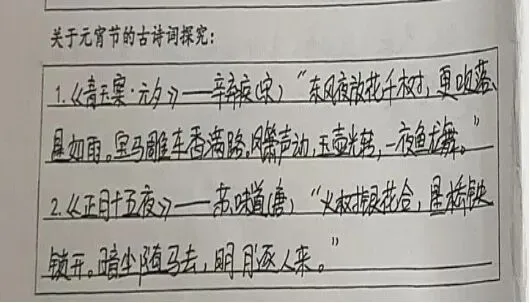 关于元宵节的古诗词探究：
1.《青玉案·元夕》——辛弃疾(宋) “东风夜放花千树，更吹落、
星如雨。宝马雕车香满路。凤箫声动，玉壶光转，一夜鱼龙舞。”
2.《正月十五夜》——苏味道(唐) “火树银花合，星桥铁
锁开。暗尘随马去，明月逐人来。”